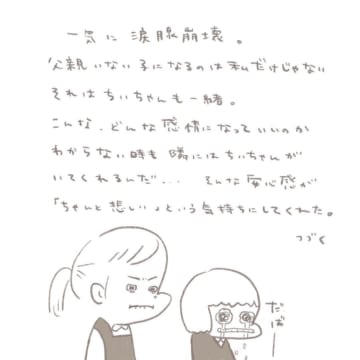 一気に涙腺崩壊。
父親いない子になるのは私だけじゃない
それはちぃちゃんも一緒。
こんな、どんな感情になっていいのか
わからない時も隣にはちぃちゃんが
いてくれるんだ... そんな安心感が
「ちゃんと悲しい」という気持ちにしてくれた。
つづく
だばー